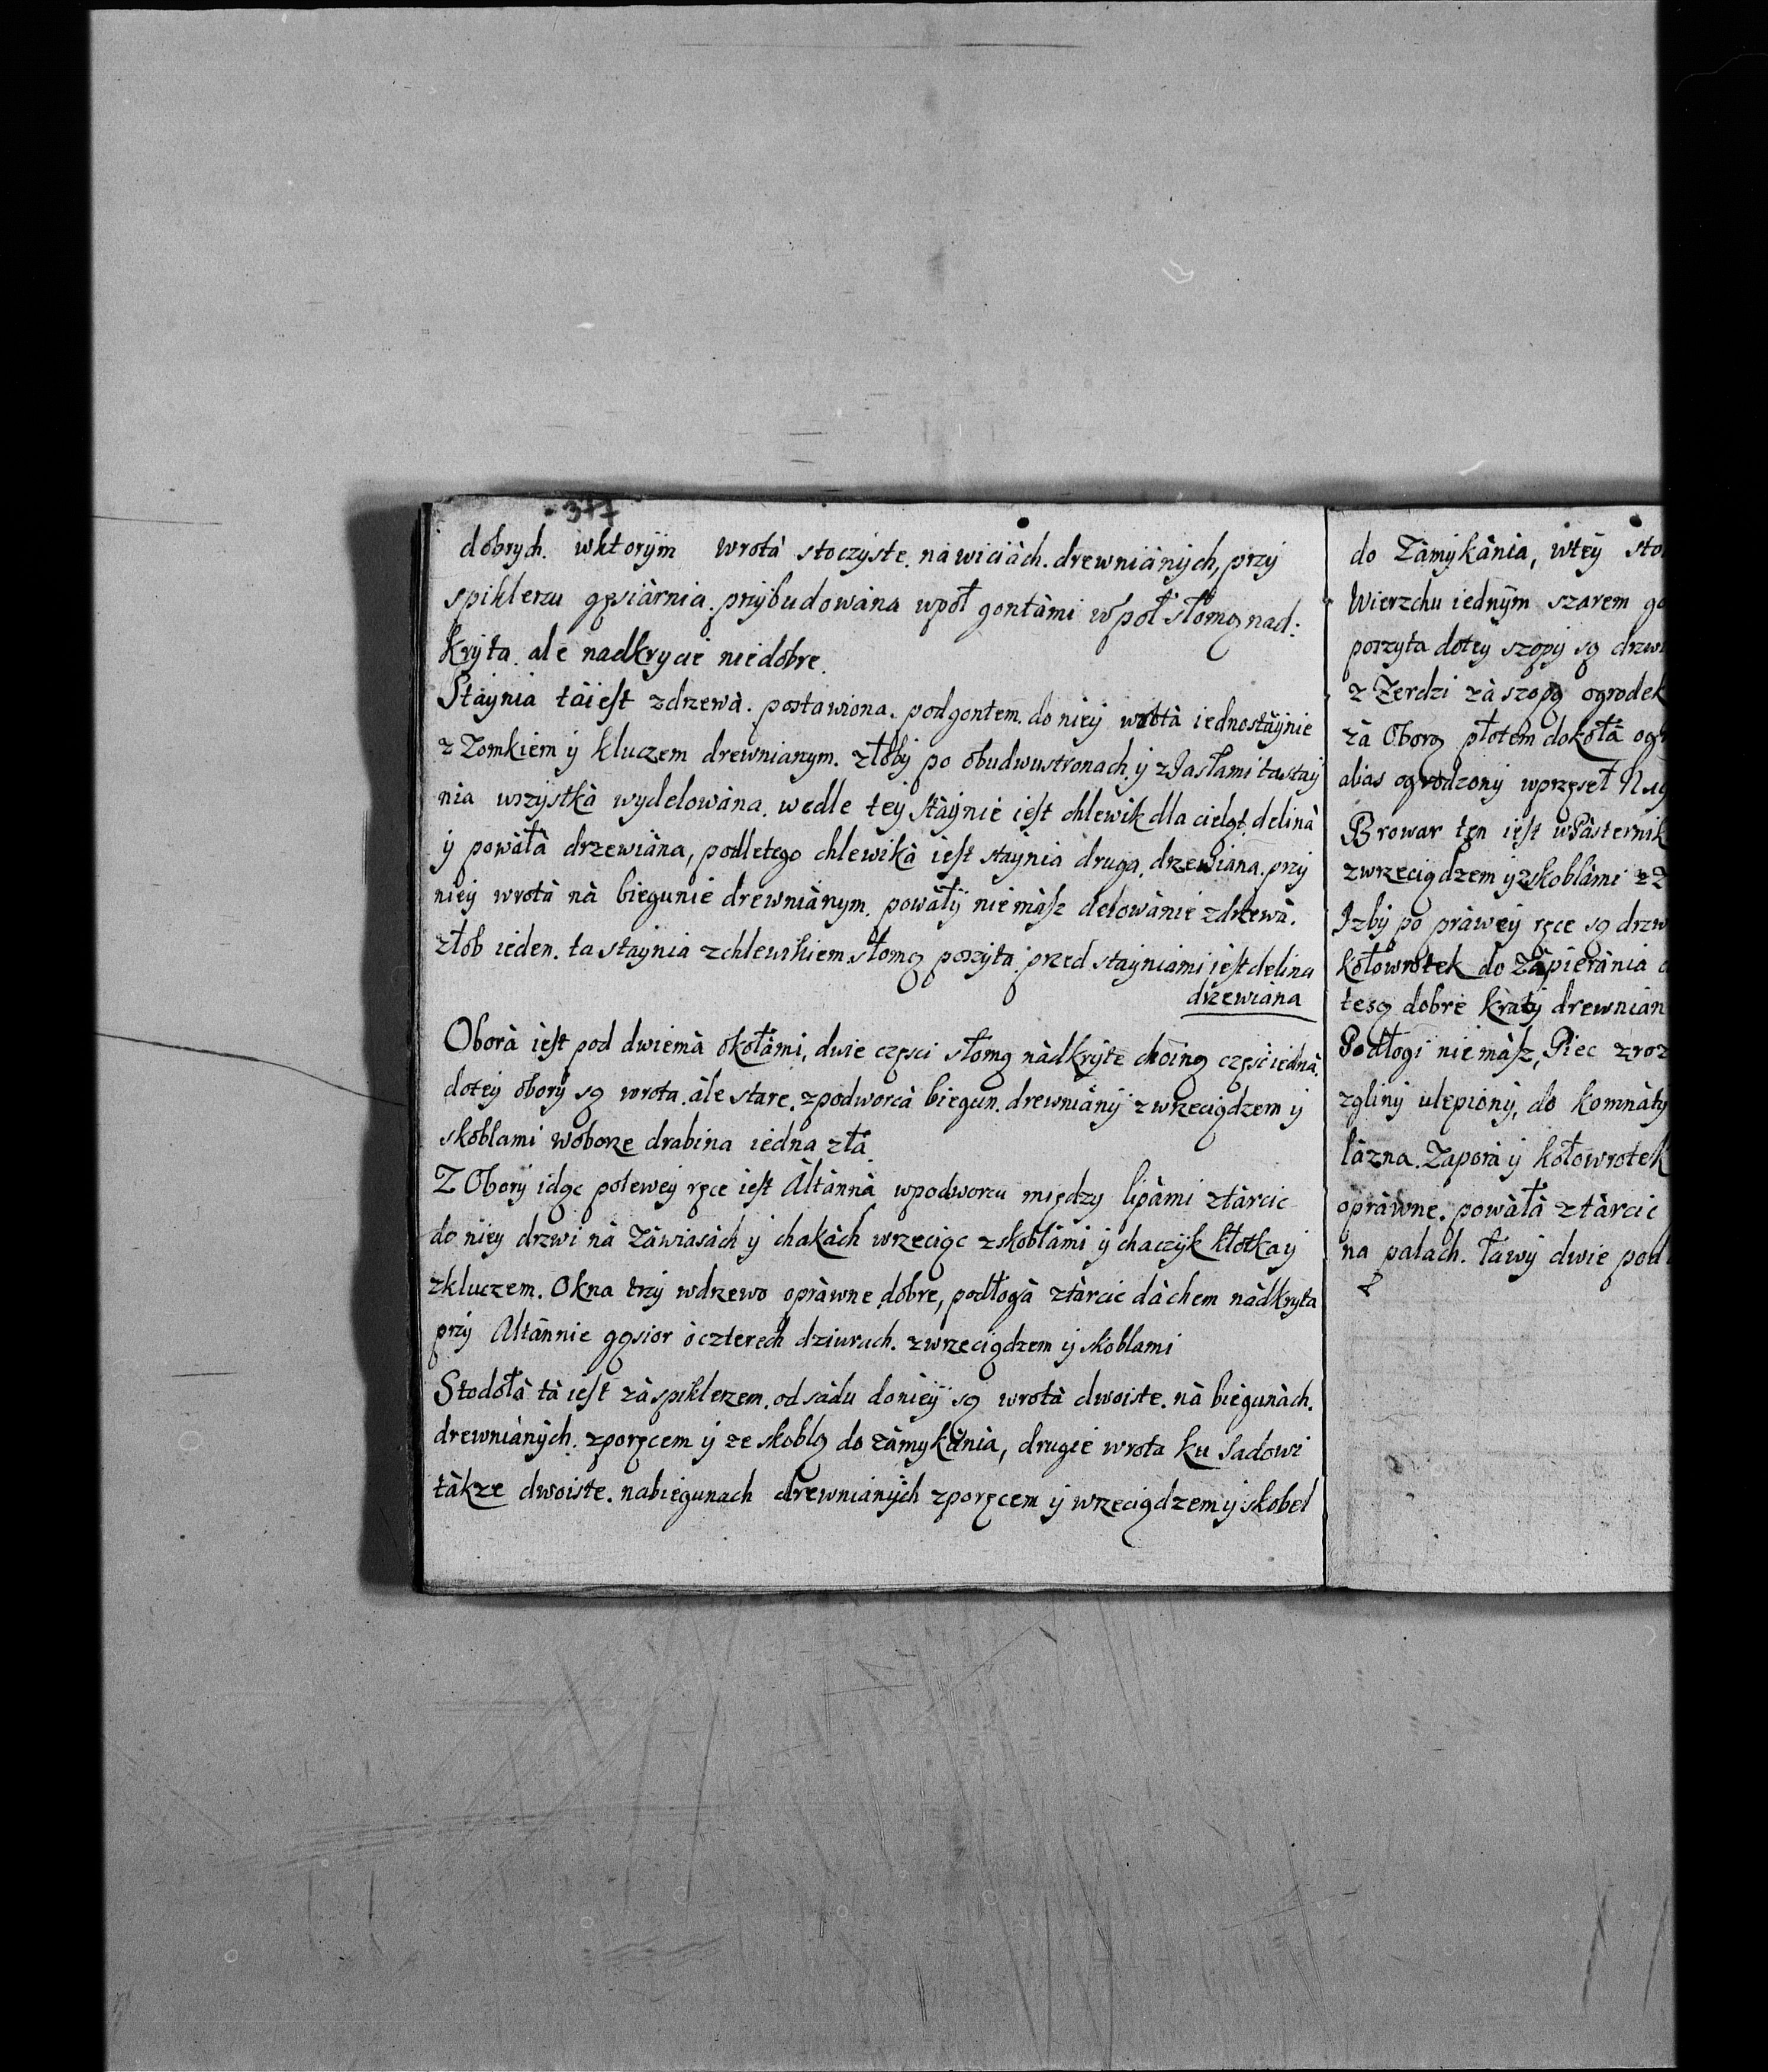 377
dobrych. wktorÿm wrotà stoczÿste. nawiciàch. drewniànÿch, przÿ
spiklerzu gęsiàrnia. przÿbudowàna wpoł gontàmi wpoł słomą nad:
krÿta. ale nadkrycie niedobre.
Stàÿnia tàiest zdrzewà. postawiona. podgontem. do nieÿ wrotà iednostàÿnie
z Zomkiem ÿ kluczem drewnianym. złobÿ po obudwustronach. ÿ zJasłami tastaÿ
nia wszÿstkà wydelowàna. wedle teÿ stàÿnie iest chlewik dla cieląt. delinà
ÿ powàłà drzewiàna, podletego chlewikà iest staÿnia druga. drzewiana. przÿ
nieÿ wrotà nà biegunie drewniànym. powàłÿ niemàsz delowànie zdrzewà.
złob ieden. ta staÿnia zchlewikiem słomą poszÿta. przed staÿniami iest delina
drzewiàna
Oborà iest pod dwiemà okołàmi, dwie częsci słomą nàdkrÿte choiną częsć iednà.
doteÿ oborÿ są wrota. àle stare. zpodworcà biegun. drewniànÿ zwrzeciądzem ÿ
skoblami woborze drabina iedna zła
Z Oborÿ idąc poleweÿ ręce iest Altànnà wpodworcu między lipàmi ztàrcic
do nieÿ drzwi nà Zàwiasàch ÿ chakàch wrzeciąc zskoblàmi ÿ chaczÿk kłotka ÿ
zkluczem. Okna trzÿ wdrzewo opràwne dobre, podłogà ztàrcic dàchem nàdkryta
przÿ Altànnie gąsior òczterech dziurach. zwrzeciądzem ÿ skoblami
Stodołà tà iest zàspiklerzem. od sàdu donieÿ są wrotà dwoiste. nà biegunàch.
drewniànÿch. zporęcem ÿ ze skoblą do zàmykània, drugie wrota ku Sadowi
tàkze dwoiste. nabiegunach drewnianÿch zporęcem ÿ wrzeciądzem ÿ skobel
do Zàmÿkània, wteÿ sto
Wierzchu iednÿm szarem go
poszyta doteÿ szopÿ są drzwi
z Zerdzi zà szopą ogrodek
zà Oborą płotem dokołà ogr
abias ogrodzonÿ wprzęseł
Browar ten iest wPàsternik
zwrzeciądzem ÿ zskoblàmi z Z
Izbÿ po pràweÿ ręce są drzw
kołowrotek do Zàpierània
tesą dobre kratÿ drewnian
Podłogi niemàsz, Piec zroz
zglinÿ ulepionÿ, do komnàtÿ
làzna. Zaporà ÿ kołowrotek
opràwne. powàłà ztàrcic
na palach. Ławÿ dwie pod